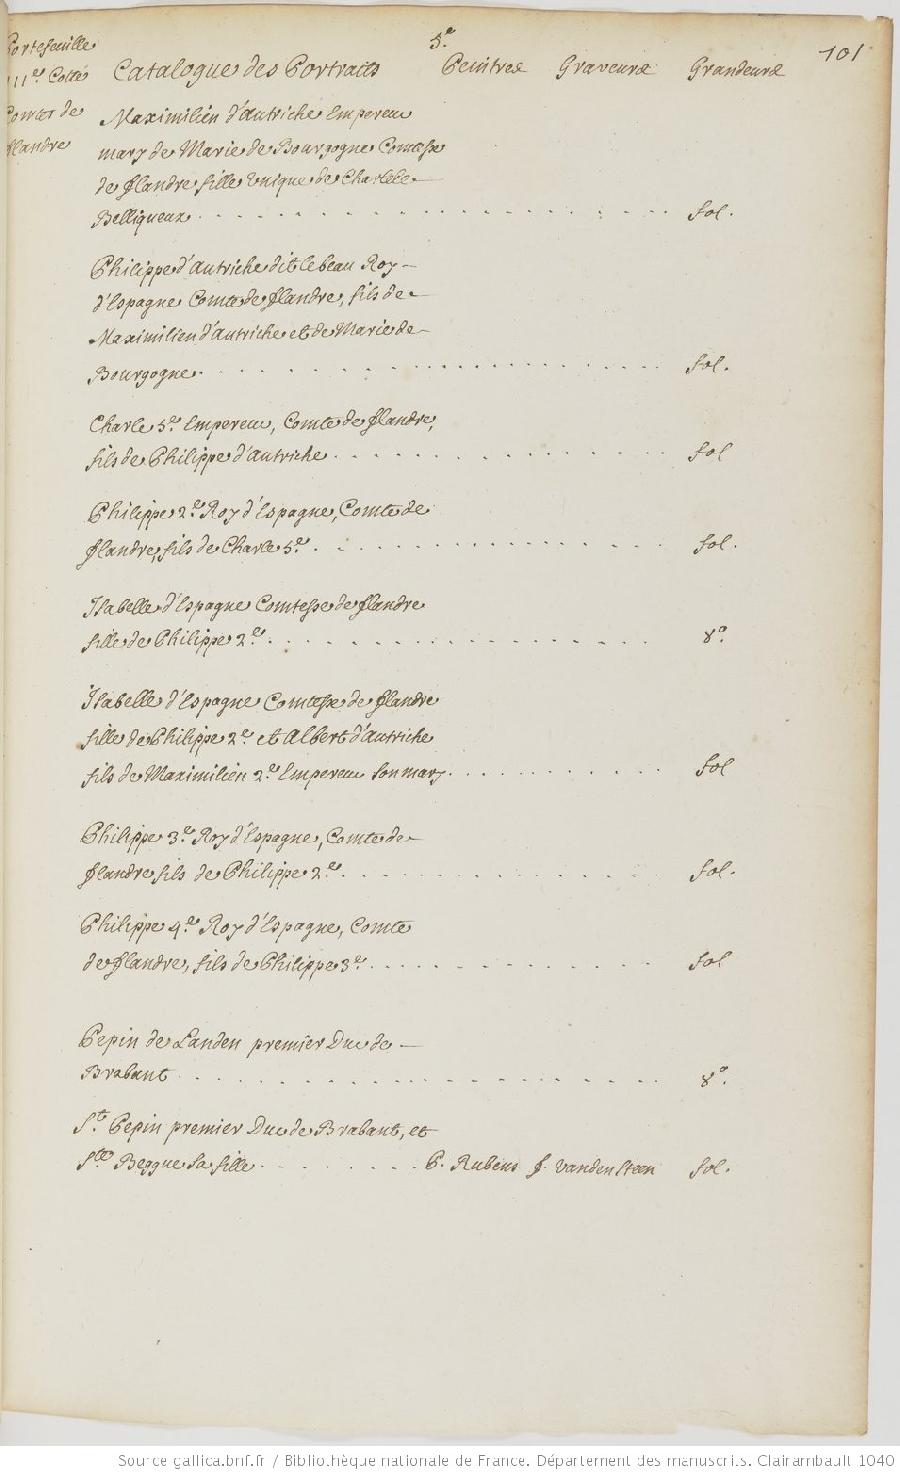 5.e
101
Portefeuille
111er Cotté Catalogue des Portraits Peintres Graveurs Grandeurs
Comtes de
flandre
Maximilien d'autriche Empereur
mary de Marie de Bourgogne Comtesse
de flandre fille unique de Charles le
Belliqueux . . . . fol.
Philippe d'autriche dit le beau Roy
d'Espagne Comte de flandre, fils de
Maximilien d'autriche et de Marie de
Bourgogne . . . . fol.
Charle 5.e Empereur, Comte de flandre,
fils de Philippe d'autriche . . . . fol
Philippe 2.e Roy d'Espagne, Comte de
flandre, fils de Charle 5.e . . . . fol.
Isabelle d'Espagne Comtesse de flandre
fille de Philippe 2.e . . . . 8.o
Isabelle d'Espagne Comtesse de flandre
fille de Philippe 2.e et Albert d'autriche
fils de Maximilien 2.e Empereur son mary . . . . fol
Philippe 3.e Roy d'Espagne, Comte de
flandre fils de Philippe 2.e . . . . fol.
Philippe 4.e Roy d'Espagne, Comte
de flandre, fils de Philippe 3.e . . . . fol
Pepin de Landen premier Duc de
Brabant . . . . 8.o
S.t Pepin premier Duc de Brabant, et
S.te Beggue sa fille . . . . P. Rubens J. vanden Steen fol.
Source gallica.bnf.fr / Bibliothèque nationale de France. Département des manuscrits. Clairambault 1040